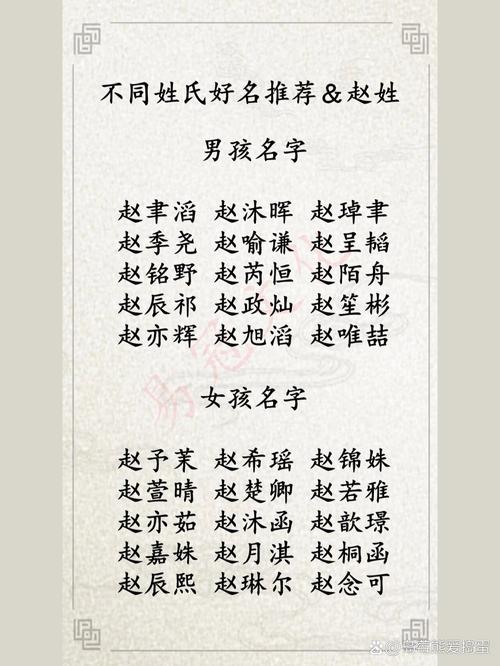 不同姓氏好名推荐&赵姓
男孩名字
赵聿滔 赵沐晖 赵琸聿
赵季尧 赵喻谦 赵呈韬
赵铭野 赵芮恒 赵陌舟
赵辰祁 赵政灿 赵笙彬
赵亦辉 赵旭滔 赵唯喆
女孩名字
赵予茉 赵希瑶 赵锦姝
赵萱晴 赵楚卿 赵若雅
赵亦茹 赵沐函 赵歆璟
赵嘉姝 赵月淇 赵桐函
赵辰熙 赵琳尔 赵念可